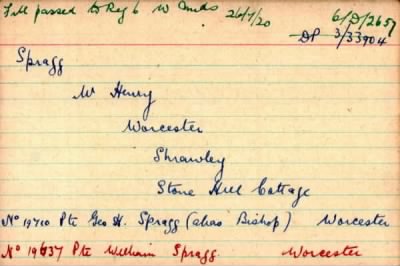 Fill passed to Reg 6 W Mids 26/7/20
6/D/2657
DP 3/33904
Spragg
Mr Henry
Worcester
Shrawley
Stone Hill Cottage
No 19710 Pte Geo H. Spragg (alias Bishop) Worcester
No 19637 Pte William Spragg. Worcester